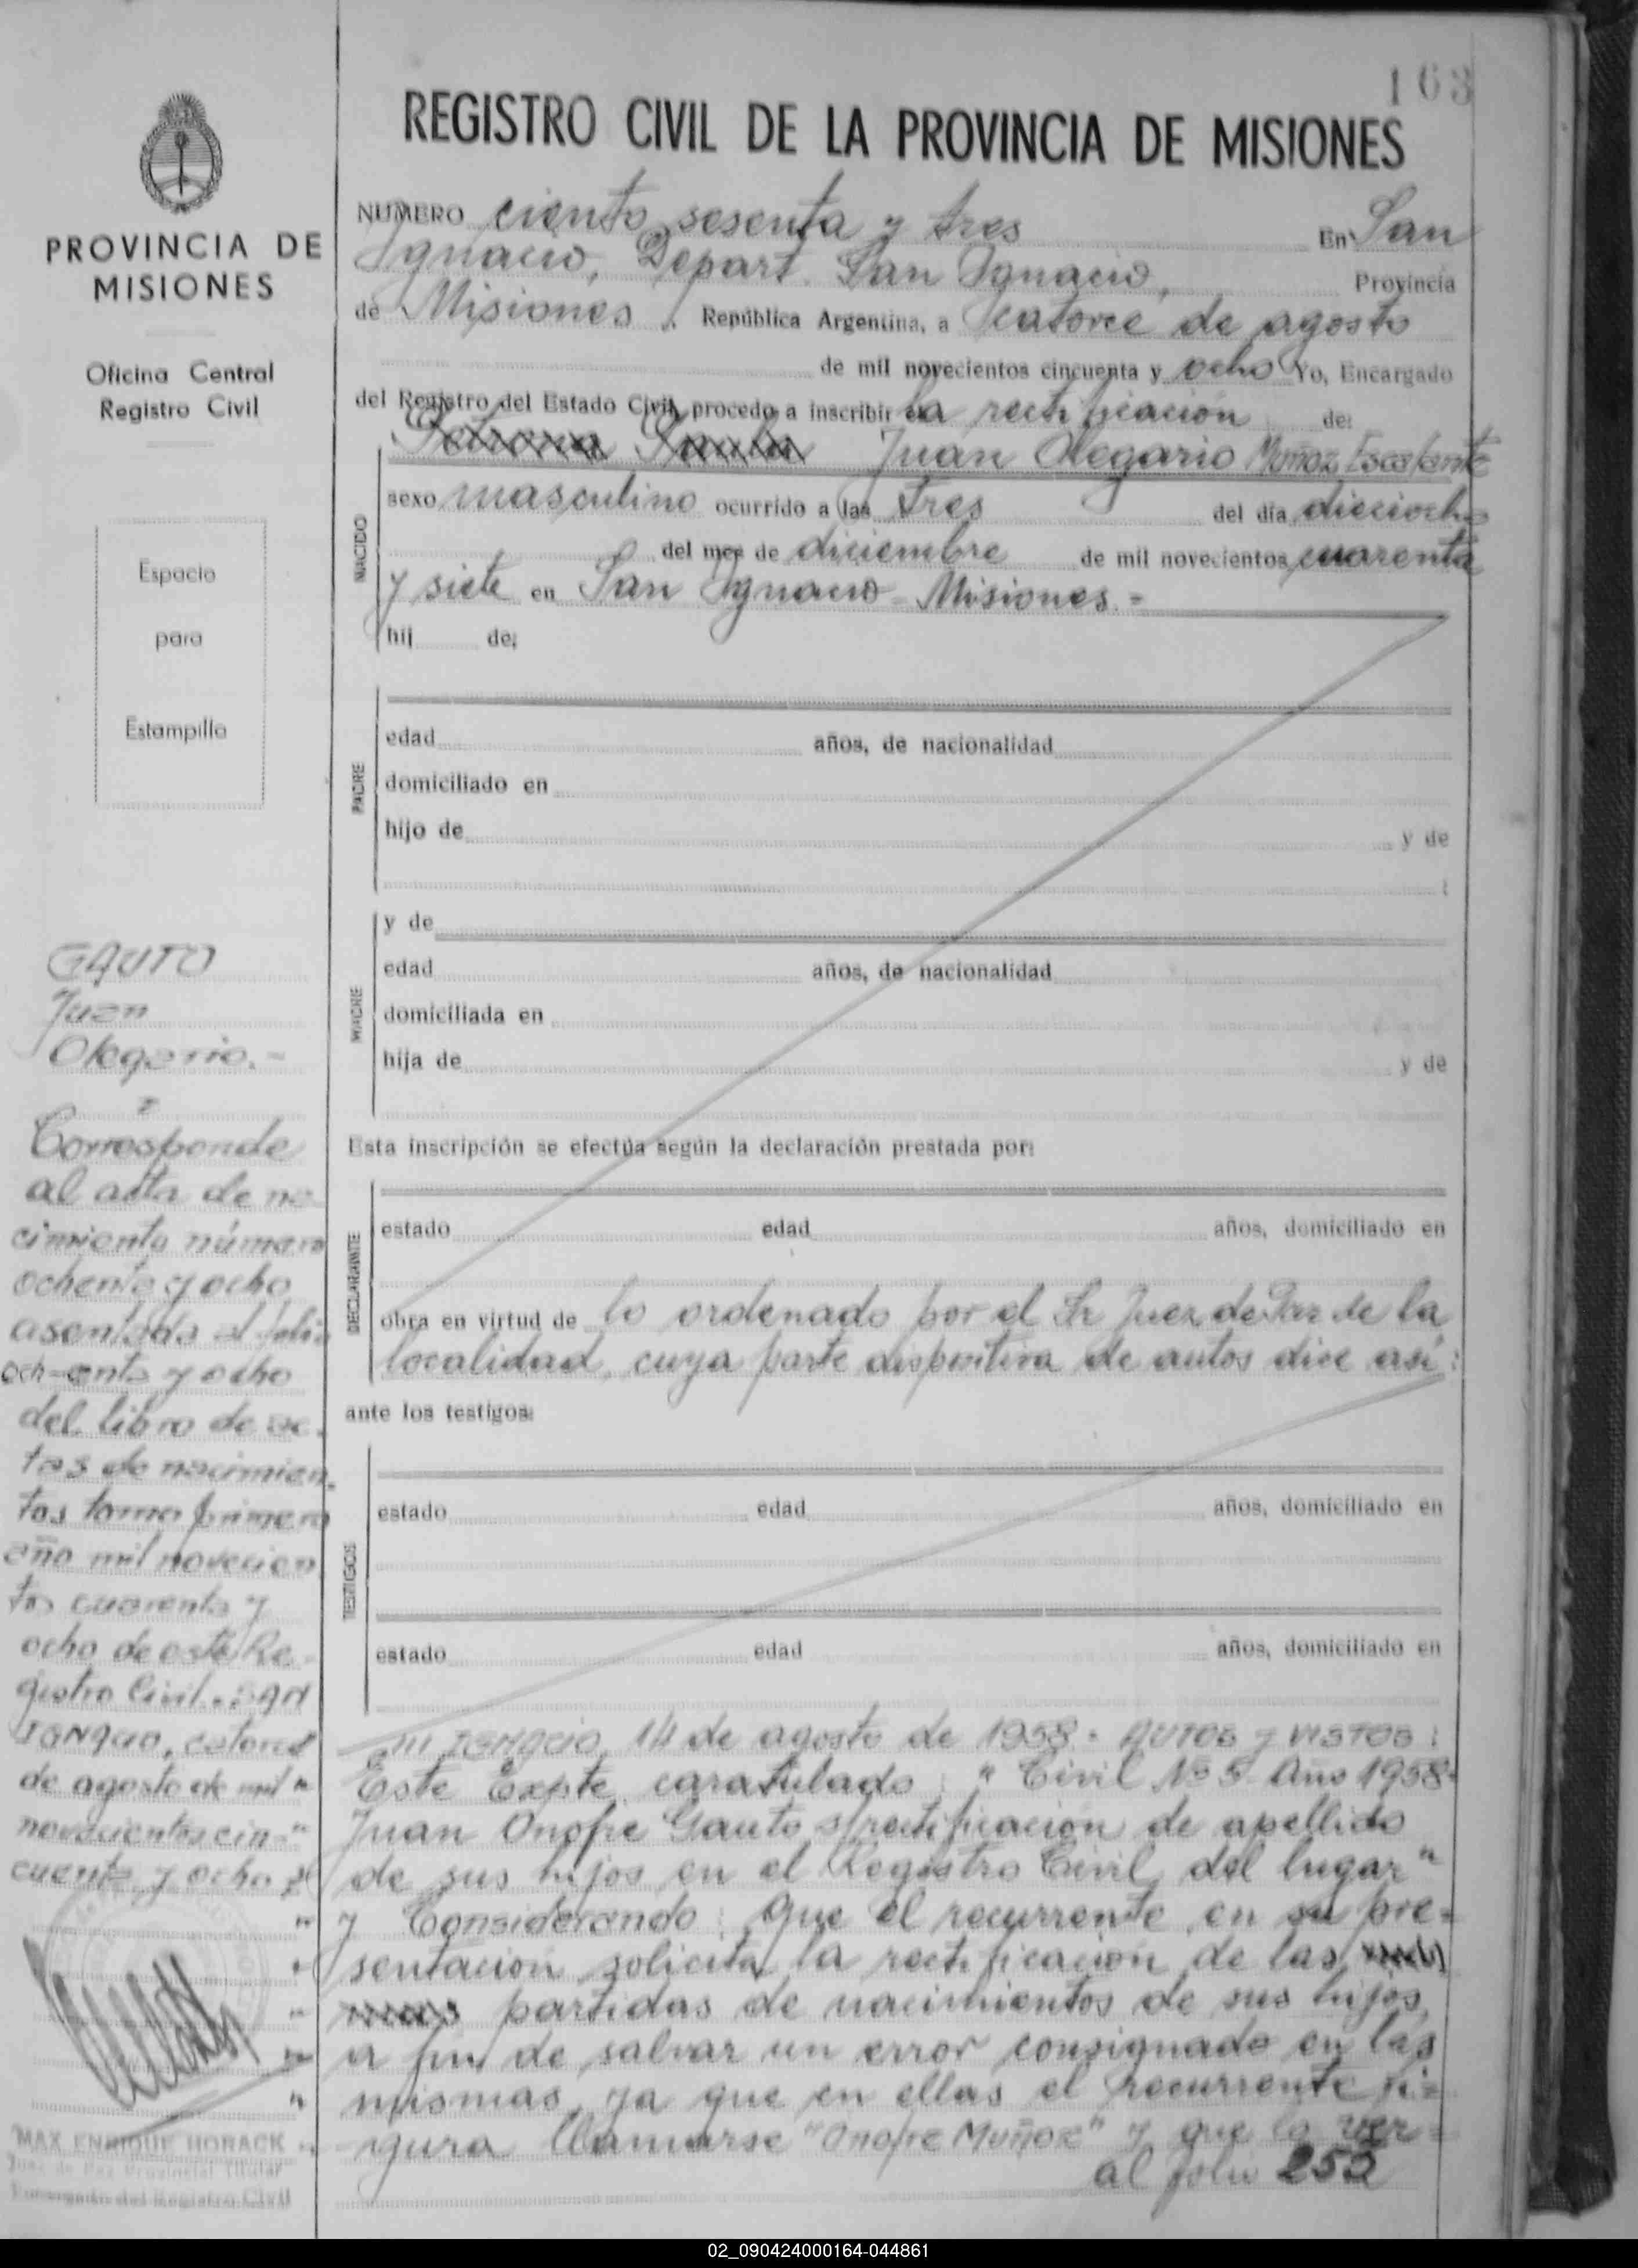 163
REGISTRO CIVIL DE LA PROVINCIA DE MISIONES
PROVINCIA DE
MISIONES
Oficina Central
Registro Civil
Espacio
para
Estampilla
NUMERO ciento sesenta y tres En San
Ignacio, Depart. San Ignacio, Provincia
de Misiones, República Argentina, a catorce de agosto
de mil novecientos cincuenta y ocho Yo, Encargado
del Registro del Estado Civil, procedo a inscribir la rectificación de:
Juan Olegario Muñoz Escalante
NACIDO
sexo masculino ocurrido a las tres del día dieciocho
del mes de diciembre de mil novecientos cuarenta
y siete en San Ignacio - Misiones. -
hij de:
PADRE
edad años, de nacionalidad
domiciliado en
hijo de y de
MADRE
y de
edad años, de nacionalidad
domiciliada en
hija de y de
Esta inscripción se efectúa según la declaración prestada por:
DECLARANTE
estado edad años, domiciliado en
obra en virtud de lo ordenado por el Sr Juez de Paz de la
localidad, cuya parte dispositiva de autos dice así:
ante los testigos:
TESTIGOS
estado edad años, domiciliado en
estado edad años, domiciliado en
IGNACIO, 14 de agosto de 1958.- AUTOS y VISTOS:
Este Expte. caratulado: "Civil Nº 5 Año 1958-
Juan Onofre Gauto s/rectificación de apellido
de sus hijos en el Registro Civil del lugar"
y Considerando: Que el recurrente en su pre-
sentación solicita la rectificación de las
partidas de nacimientos de sus hijos,
a fin de salvar un error consignado en las
mismas, ya que en ellas el recurrente fi=
gura llamarse "Onofre Muñoz" y que la ver=
al folio 252
GAUTO
Juan
Olegario.-
Corresponde
al acta de na
cimiento número
ochenta y ocho
asentada al folio
ochenta y ocho
del libro de ac-
tas de nacimien-
tos tomo primero
año mil novecien
tos cuarenta y
ocho de este Re-
gistro Civil.- San
Ignacio, catorce
de agosto de mil
novecientos cin-
cuenta y ocho
MAX ENRIQUE HORACK
Juez de Paz Provincial Titular
Encargado del Registro Civil
02_090424000164-044861